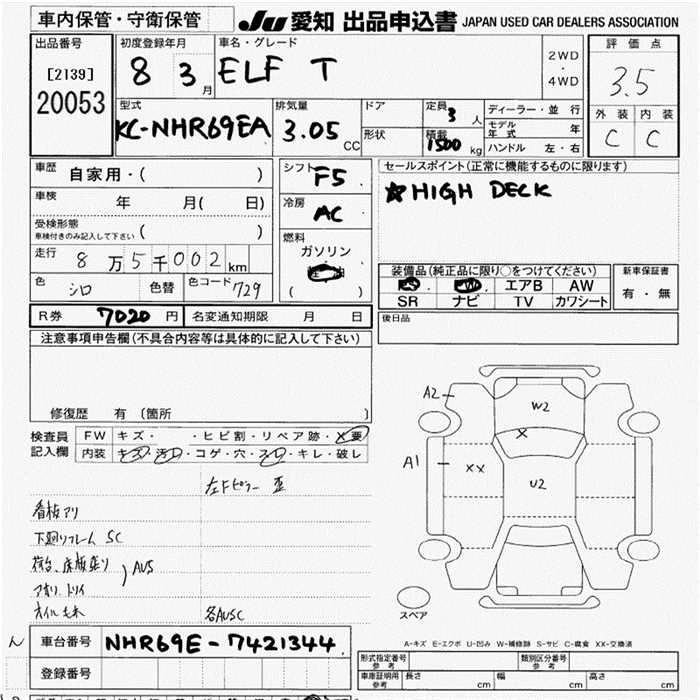 車内保管・守衛保管
JU 愛知 出品申込書 JAPAN USED CAR DEALERS ASSOCIATION
出品番号
[2139]
20053
初度登録年月
8 3 月
車名・グレード
ELF T
2WD
・
4WD
評価点
3.5
外装 内装
C C
型式
KC-NHR69EA
排気量
3.05 CC
ドア
形状
定員 3 人
積載 1500 kg
ディーラー・並行
モデル年式 年
ハンドル 左・右
車歴 自家用・( )
車検 年 月( 日)
受検形態
車検付きのみ記入して下さい ( )
走行 8 万 5 千 002 km
色 シロ 色替 色コード 729
シフト F5
冷房 AC
燃料
ガソリン
( )
セールスポイント(正常に機能するものに限ります)
☆HIGH DECK
装備品(純正品に限り○をつけてください)
PS PW エアB AW
SR ナビ TV カワシート
新車保証書
有・無
R券 7020 円 名変通知期限 月 日
後日品
注意事項申告欄(不具合内容等は具体的に記入して下さい)
修復歴 有 (箇所 )
検査員記入欄
FW キズ・ ・ヒビ割・リペア跡・X要
内装 キズ・汚レ・コゲ・穴・スレ・キレ・破レ
左Fピラー 歪
看板アリ
下廻リフレム SC
荷台、床板張り
AUS
アオリ、トリイ
オイルモレ
各AUSC
A2
W2
X
A1
XX
U2
スペア
A-キズ E-エクボ U-凹み W-補修跡 S-サビ C-腐食 XX-交換済
車台番号 NHR69E-7421344
登録番号
形式指定番号 参考
類別区分番号 参考
車庫証明用 参考 長さ cm 幅 cm 高さ cm